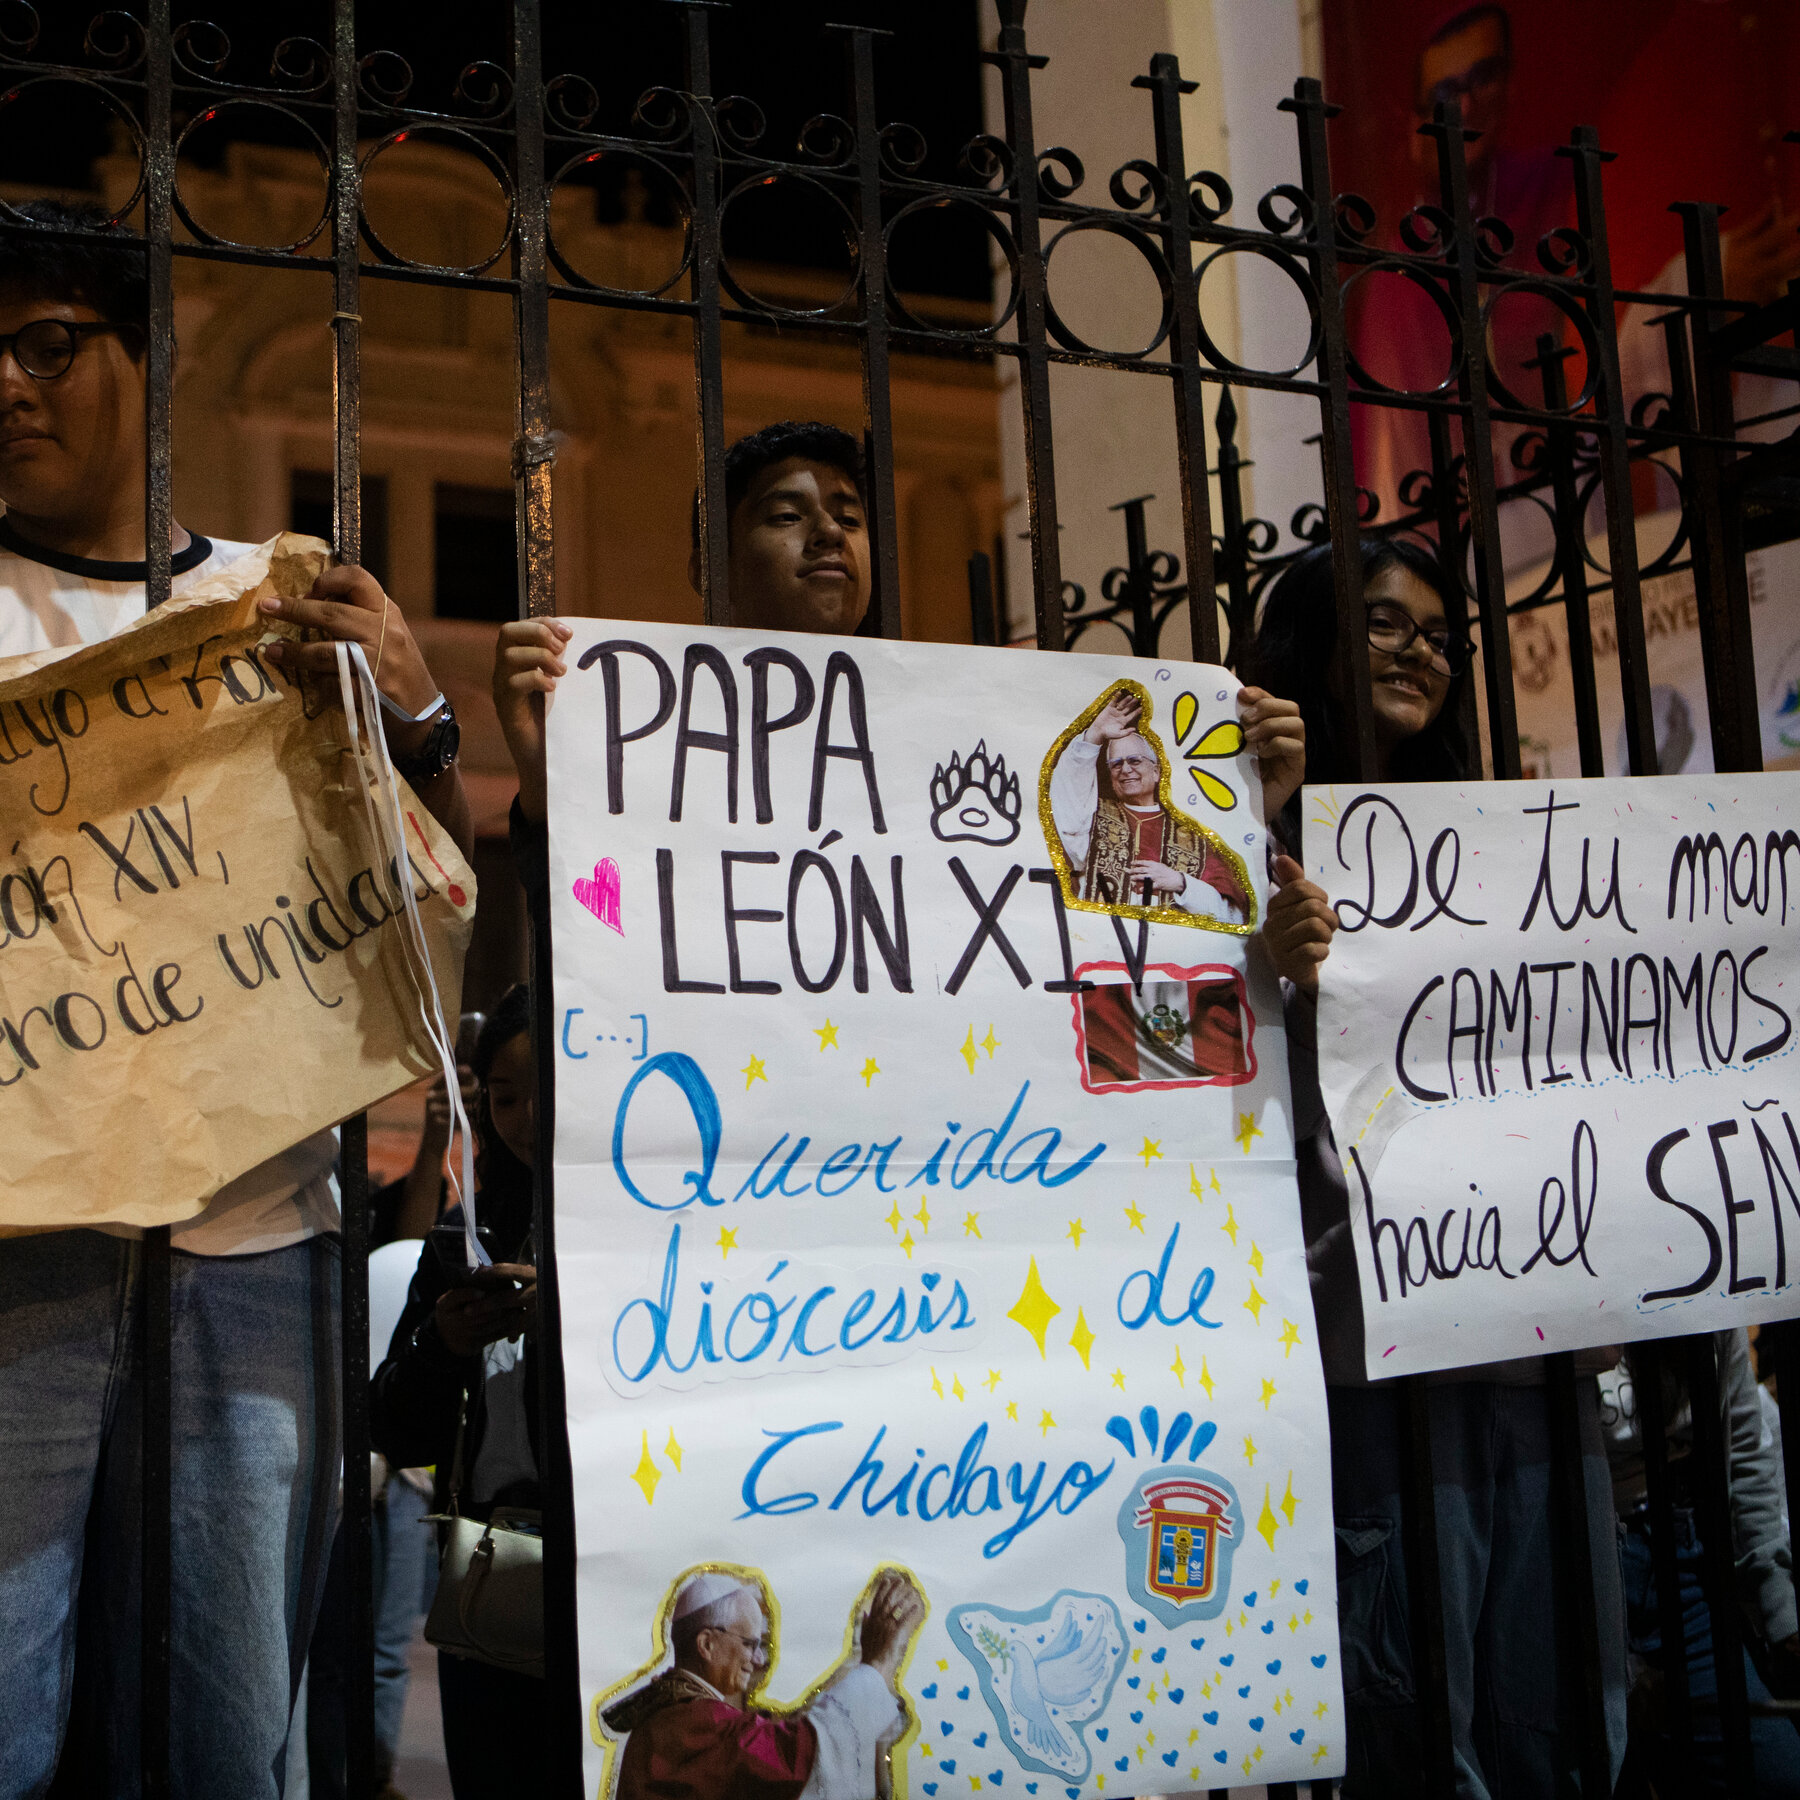 a Rom
León XIV,
de unidad!
PAPA
LEÓN XIV
[...]
Querida
diócesis de
Chiclayo
De tu
CAMINAMOS
hacia el